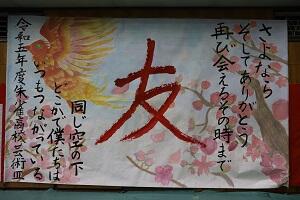 さよなら
そしてありがとう
再び会えるその時まで
友
同じ空の下
どこか僕たちは
いつもつながっている
令和五年度朱雀高校芸術Ⅲ